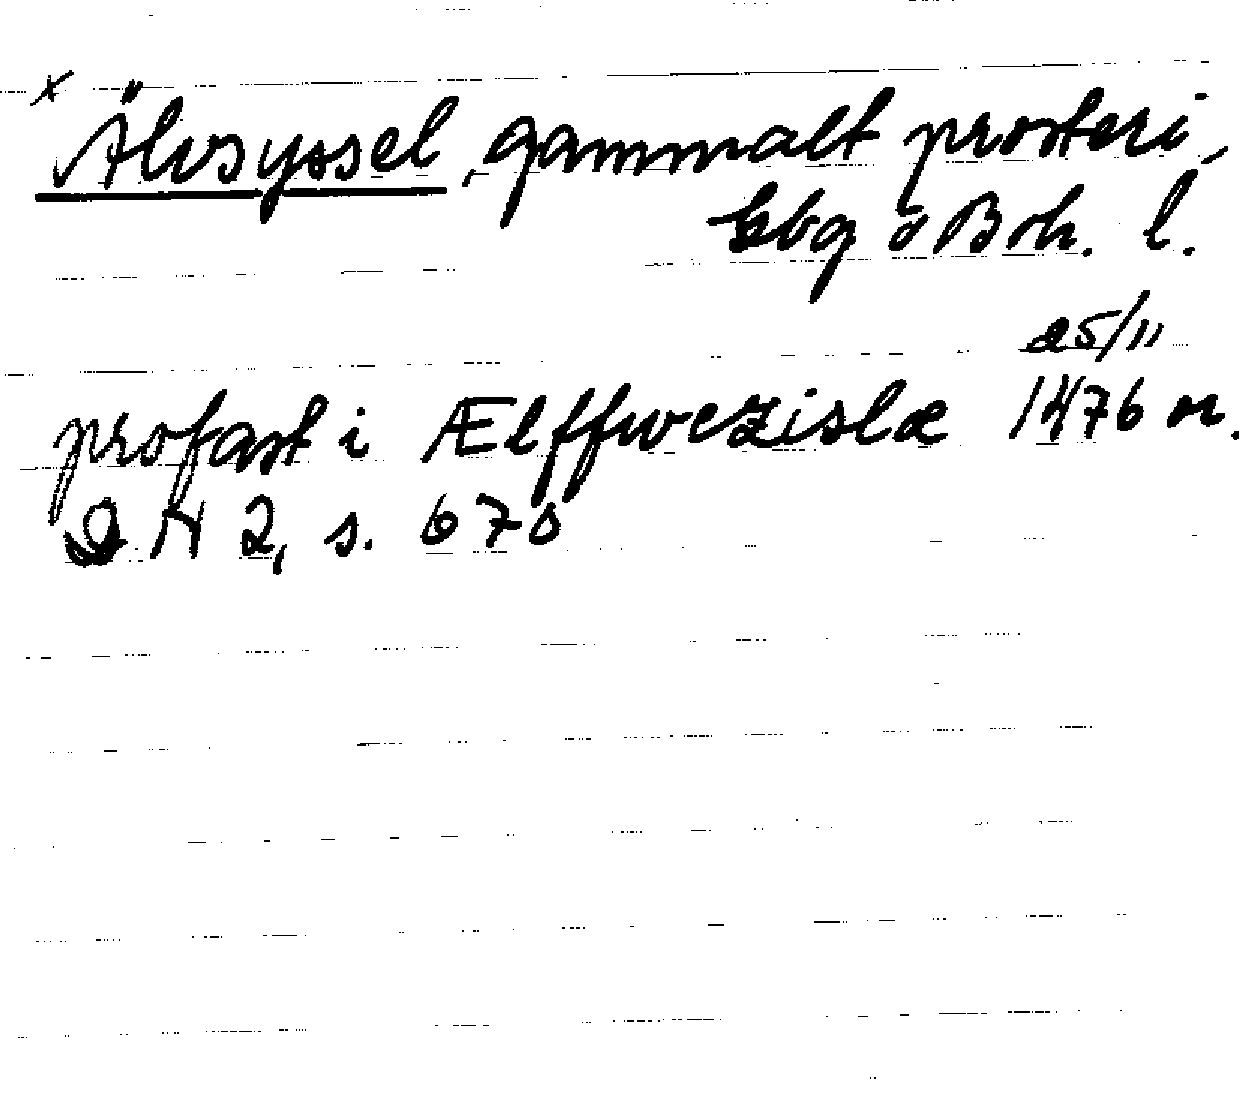 x Älvsyssel, gammalt prosteri,
Gbg o Boh. l.
25/11
profast i Ælffwezislæ 1476 or.
DN 2, s. 670